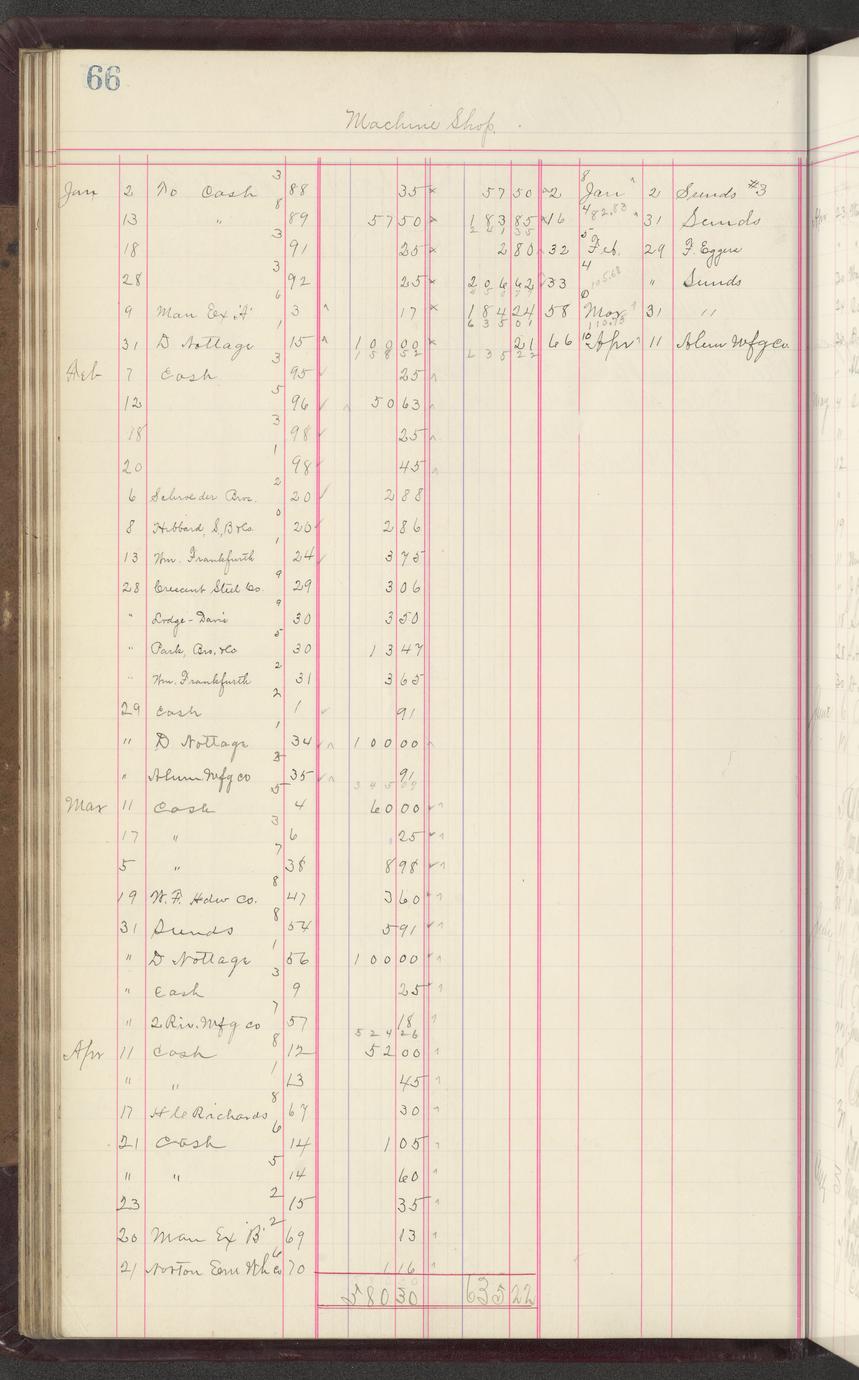 66
Machine Shop.
Jan 2 To Cash 3 88 35 57 50 2 8 Jan 2 Sunds #3
13 " 8 89 57 50 183 85 16 4 82.83 31 Sunds
241 35
18 3 91 25 2 80 32 5 Feb. 29 F. Eggers
28 3 92 25 206 62 33 4 105.68 " Sunds
9 Man Ex 'A' 6 3 17 184 24 58 0 Mar 31 "
635 01 110.75
31 D Nottage 1 15 100 00 21 66 10 Apr 11 Alum Mfg co
158 52 635 22
Feb 7 Cash 3 95 25
12 5 96 50 63
18 3 98 25
20 1 98 45
6 Schroeder Bros. 2 20 2 88
8 Hibbard, S, B & Co. 0 20 2 86
13 Wm. Frankfurth 1 24 3 75
28 Crescent Steel Co. 9 29 3 06
" Lodge-Davis 9 30 3 50
" Park, Bro. & Co 5 30 13 47
" Wm. Frankfurth 2 31 3 65
29 Cash 2 1 91
" D Nottage 1 34 100 00
" Alum Mfg co 3 35 91
Mar 11 Cash 5 4 60 00
17 " 3 6 25
5 " 7 38 8 98
19 W. F. Hdw Co. 8 47 3 60
31 Sunds 8 54 5 91
" D Nottage 1 56 100 00
" Cash 3 9 25
" 2 Riv. Mfg co 7 57 18
524 26
Apr 11 Cash 8 12 52 00
" " 1 13 45
17 H C Richards 8 67 30
21 Cash 6 14 1 05
" " 5 14 60
23 2 15 35
20 Man Ex 'B' 2 69 13
21 Norton Em Wh Co 6 70 1 16
580 30 635 22